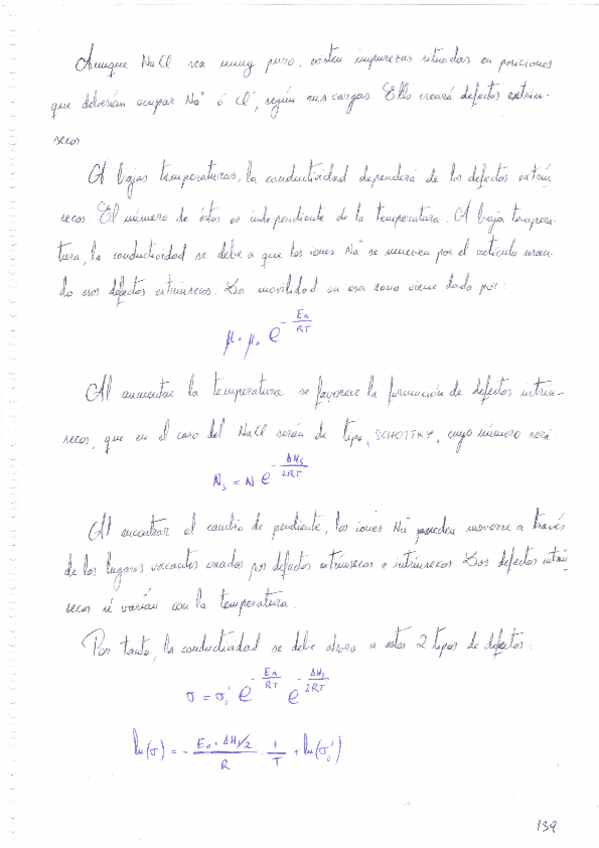 Aunque NaCl sea muy puro, existen impurezas situadas en posiciones
que deberían ocupar Na⁺ ó Cl⁻, según sus cargas. Ello creará defectos extrín-
secos.
A bajas temperaturas, la conductividad dependerá de los defectos extrín
secos. El número de éstos es independiente de la temperatura. A baja tempera-
tura, la conductividad se debe a que los iones Na⁺ se mueven por el retículo usan-
do esos defectos extrínsecos. La movilidad en esa zona viene dada por:
μ = μ₀ e^(-Ea/RT)
Al aumentar la temperatura se favorece la formación de defectos intrín-
secos, que en el caso del NaCl serán de tipo, SCHOTTKY, cuyo número será
Ns = N e^(-ΔHs/2RT)
Al encontrar el cambio de pendiente, los iones Na⁺ pueden moverse a través
de los lugares vacantes creados por defectos extrínsecos e intrínsecos. Los defectos intrín
secos sí varían con la temperatura.
Por tanto, la conductividad se debe ahora a estos 2 tipos de defectos:
σ = σ₀' e^(-Ea/RT) e^(-ΔHs/2RT)
ln(σ) = - (Ea + ΔHs/2)/R · 1/T + ln(σ₀')
139